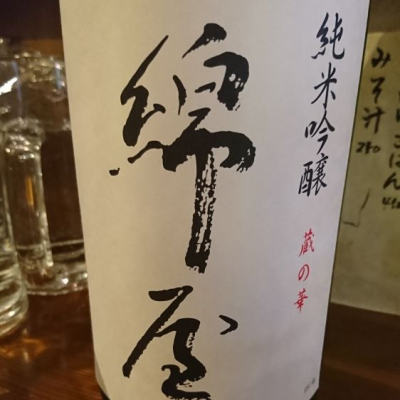 純米吟醸
蔵の華
綿屋
みそ汁
250
ごはん